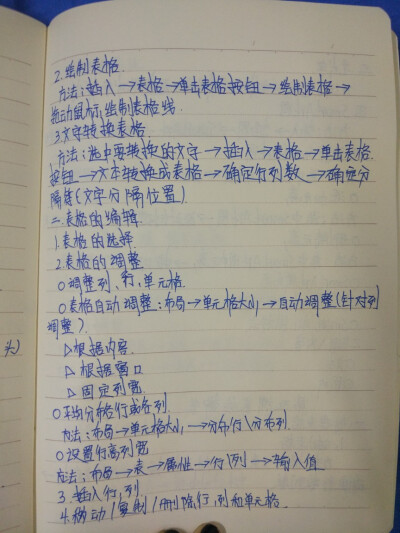 2.绘制表格
方法:插入→表格→单击表格按钮→绘制表格→
拖动鼠标,绘制表格线.
3.文字转换表格.
方法:选中要转换的文字→插入→表格→单击表格
按钮→文本转换成表格→确定行列数→确定分
隔符(文字分隔位置)
二.表格的编辑
1.表格的选择
2.表格的调整
○调整列、行、单元格.
○表格自动调整:布局→单元格大小→自动调整(针对列
调整)
▷根据内容
▷根据窗口
▷固定列宽
○平均分布各行或各列
方法:布局→单元格大小→分布行\分布列
○设置行高列宽
方法:布局→表→属性→行\列→输入值
3.插入行,列
4.移动/复制/删除行,列和单元格.
头)